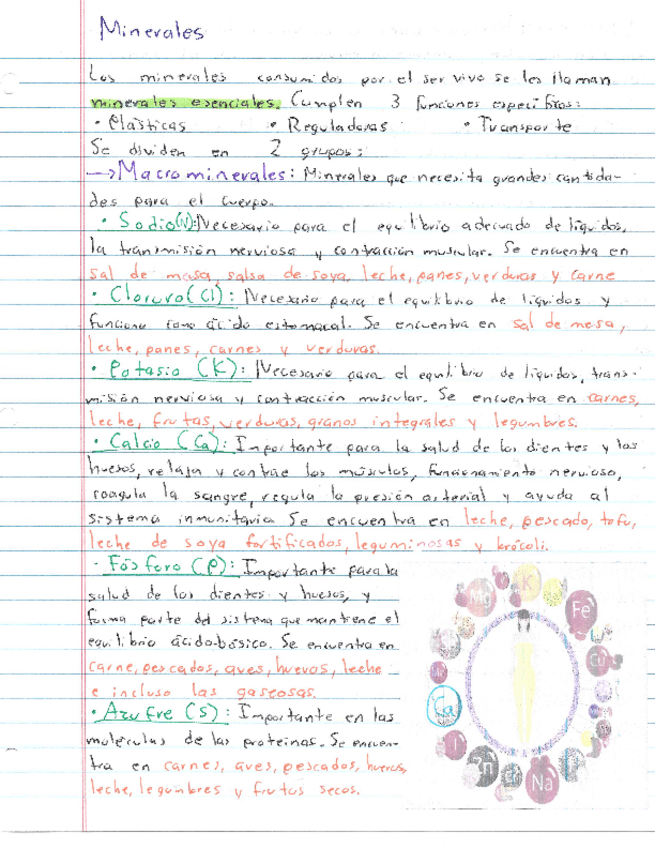 Minerales
Los minerales consumidos por el ser vivo se les llaman
minerales esenciales. Cumplen 3 funciones específicas:
• Plásticas • Reguladoras • Transporte
Se dividen en 2 grupos:
→ Macrominerales: Minerales que necesita grandes cantida-
des para el cuerpo.
• Sodio(N): Necesario para el equilibrio adecuado de líquidos,
la transmisión nerviosa y contracción muscular. Se encuentra en
sal de mesa, salsa de soya, leche, panes, verduras y carne
• Cloruro(Cl): Necesario para el equilibrio de líquidos y
funciona como ácido estomacal. Se encuentra en sal de mesa,
leche, panes, carnes y verduras.
• Potasio (K): Necesario para el equilibrio de líquidos, trans-
misión nerviosa y contracción muscular. Se encuentra en carnes,
leche, frutas, verduras, granos integrales y legumbres.
• Calcio (Ca): Importante para la salud de los dientes y los
huesos, relaja y contrae los músculos, funcionamiento nervioso,
coagula la sangre, regula la presión arterial y ayuda al
sistema inmunitario Se encuentra en leche, pescado, tofu,
leche de soya fortificados, leguminosas y brócoli.
• Fósforo (P): Importante para la
salud de los dientes y huesos, y
forma parte del sistema que mantiene el
equilibrio ácido-básico. Se encuentra en
carne, pescados, aves, huevos, leche
e incluso las gaseosas.
• Azufre (S): Importante en las
moléculas de las proteínas. Se encuen-
tra en carnes, aves, pescados, huevos,
leche, legumbres y frutos secos.
Mg K Fe
Cu
Ca
I
Na